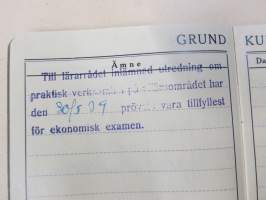 GRUND KU
Ämne Da
Till lärarrådet inlämnad utredning om
praktisk området har
den 30/5 39 vara tillfyllest
för ekonomisk examen.